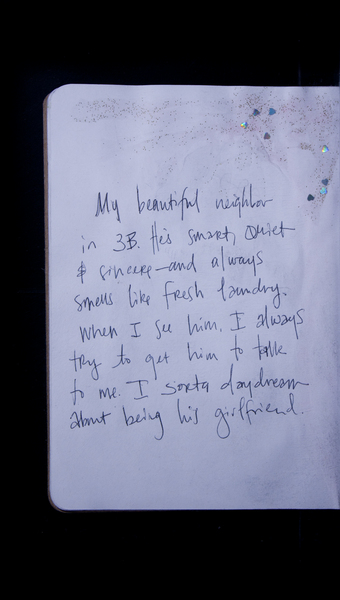 My beautiful neighbor
in 3B. He's smart, quiet
& sincere—and always
smells like fresh laundry.
When I see him, I always
try to get him to talk
to me. I sorta daydream
about being his girlfriend.